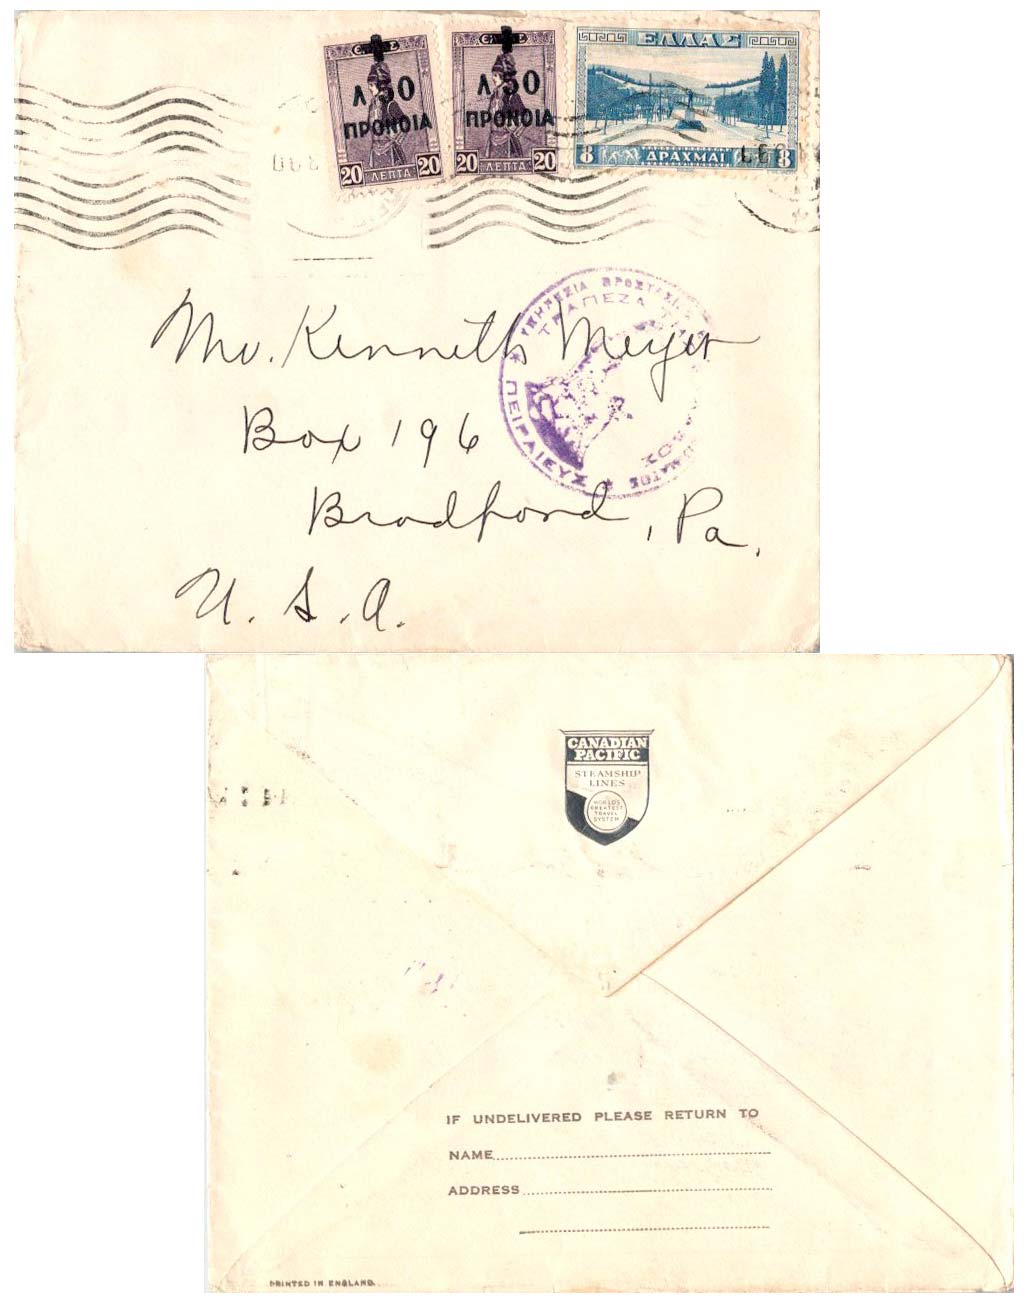 ΕΛΛΑΣ
Λ 50
ΠΡΟΝΟΙΑ
20 ΛΕΠΤΑ 20
Λ 50
ΠΡΟΝΟΙΑ
20 ΛΕΠΤΑ 20
8 ΔΡΑΧΜΑΙ 8
ΥΠΗΡΕΣΙΑ
ΤΡΑΠΕΖΑ
ΠΕΙΡΑΙΕΥΣ
Mr. Kenneth Meyer
Box 196
Bradford, Pa.
U. S. A.
CANADIAN
PACIFIC
STEAMSHIP
LINES
WORLD'S
GREATEST
TRAVEL
SYSTEM
IF UNDELIVERED PLEASE RETURN TO
NAME
ADDRESS
PRINTED IN ENGLAND.